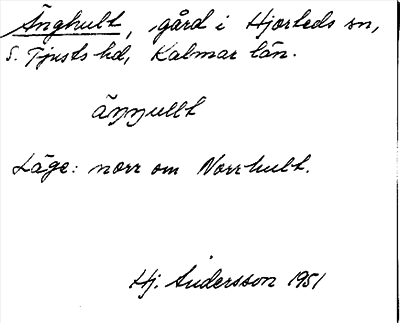 Änghult, gård i Hjorteds sn,
S. Tjusts hd, Kalmar län.
äŋŋullt
Läge: norr om Norrhult.
Hj. Andersson 1951